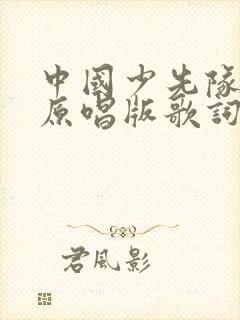 中國少先隊
原唱版歌詞
君風影